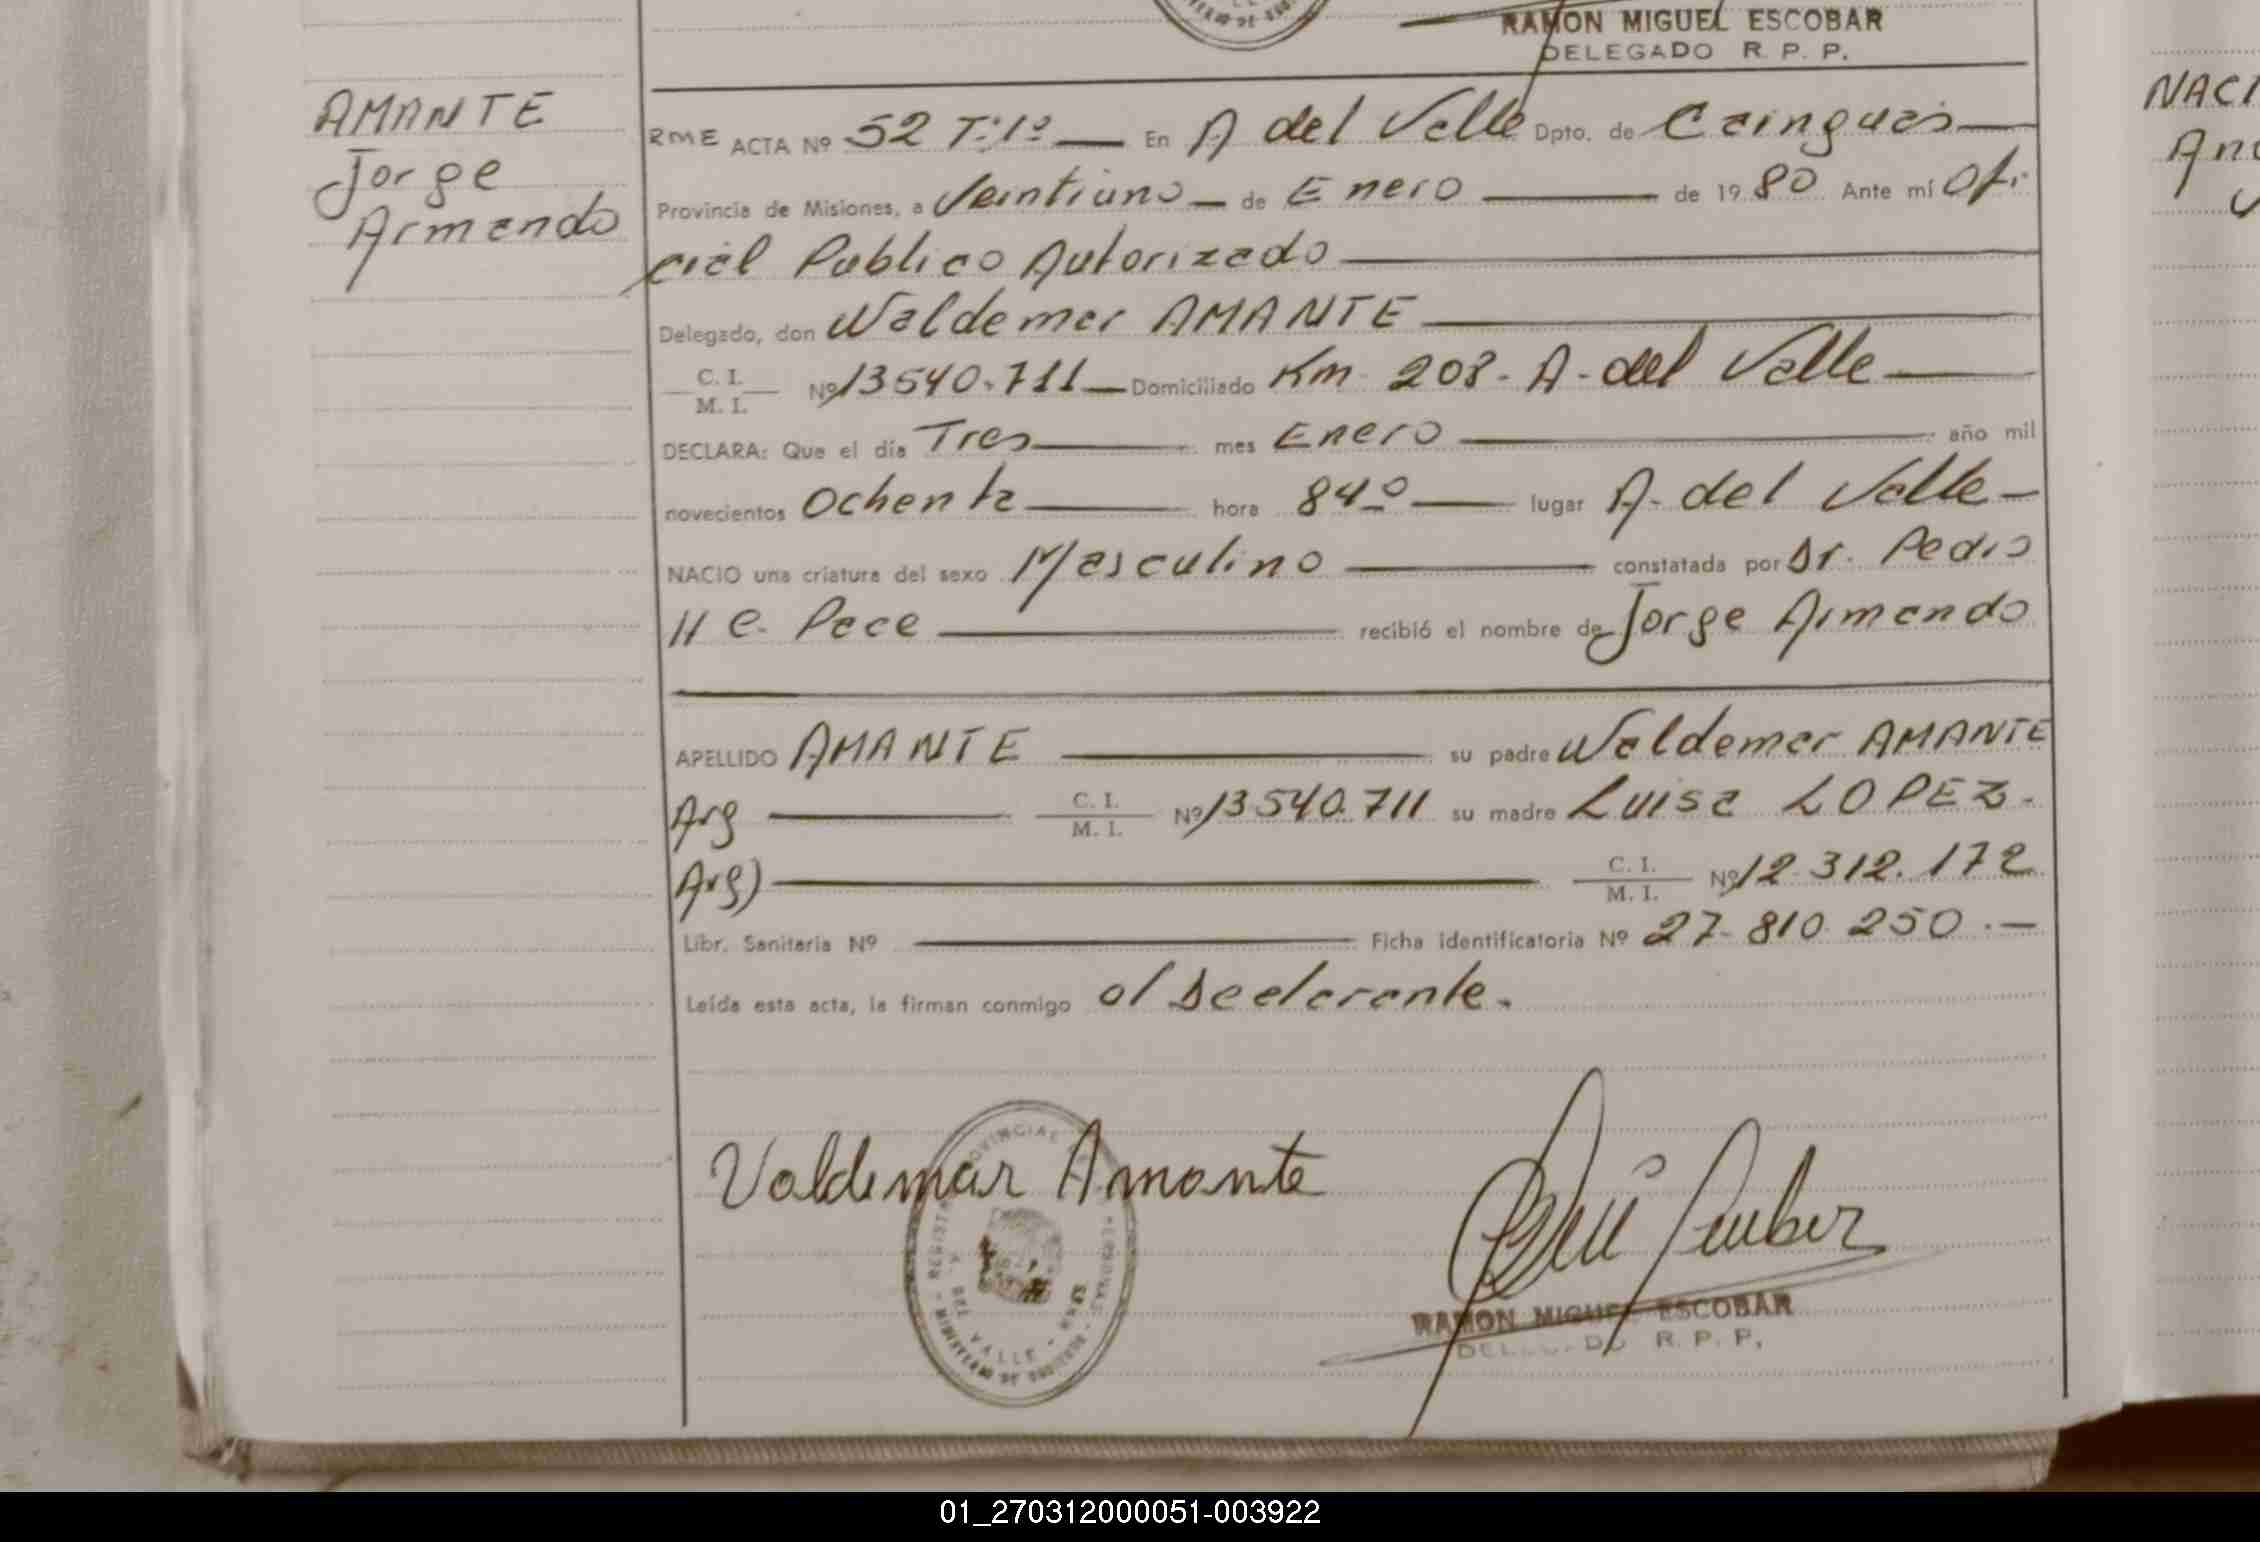 RAMON MIGUEL ESCOBAR
DELEGADO R. P. P.
AMANTE
Jorge
Armando
RME ACTA Nº 52 Tº1º En A del Valle Dpto. de Cainguas
Provincia de Misiones, a Veintiuno de Enero de 1980 Ante mí Ofi-
cial Publico Autorizado
Delegado, don Waldemar AMANTE
C. I.
M. I. Nº 13540.711 Domiciliado Km 208- A- del Valle
DECLARA: Que el día Tres mes Enero año mil
novecientos Ochenta hora 84º lugar A- del Valle
NACIO una criatura del sexo Masculino constatada por Dr. Pedro
H e. Pace recibió el nombre de Jorge Armando
APELLIDO AMANTE su padre Waldemar AMANTE
Arg C. I.
M. I. Nº 13540.711 su madre Luisa LOPEZ.
Arg) C. I.
M. I. Nº 12.312.172
Libr. Sanitaria Nº Ficha identificatoria Nº 27-810.250.-
Leída esta acta, la firman conmigo el declarante.
Valdemar Amante
RAMON MIGUEL ESCOBAR
DELEGADO R. P. P.
NACI
01_270312000051-003922